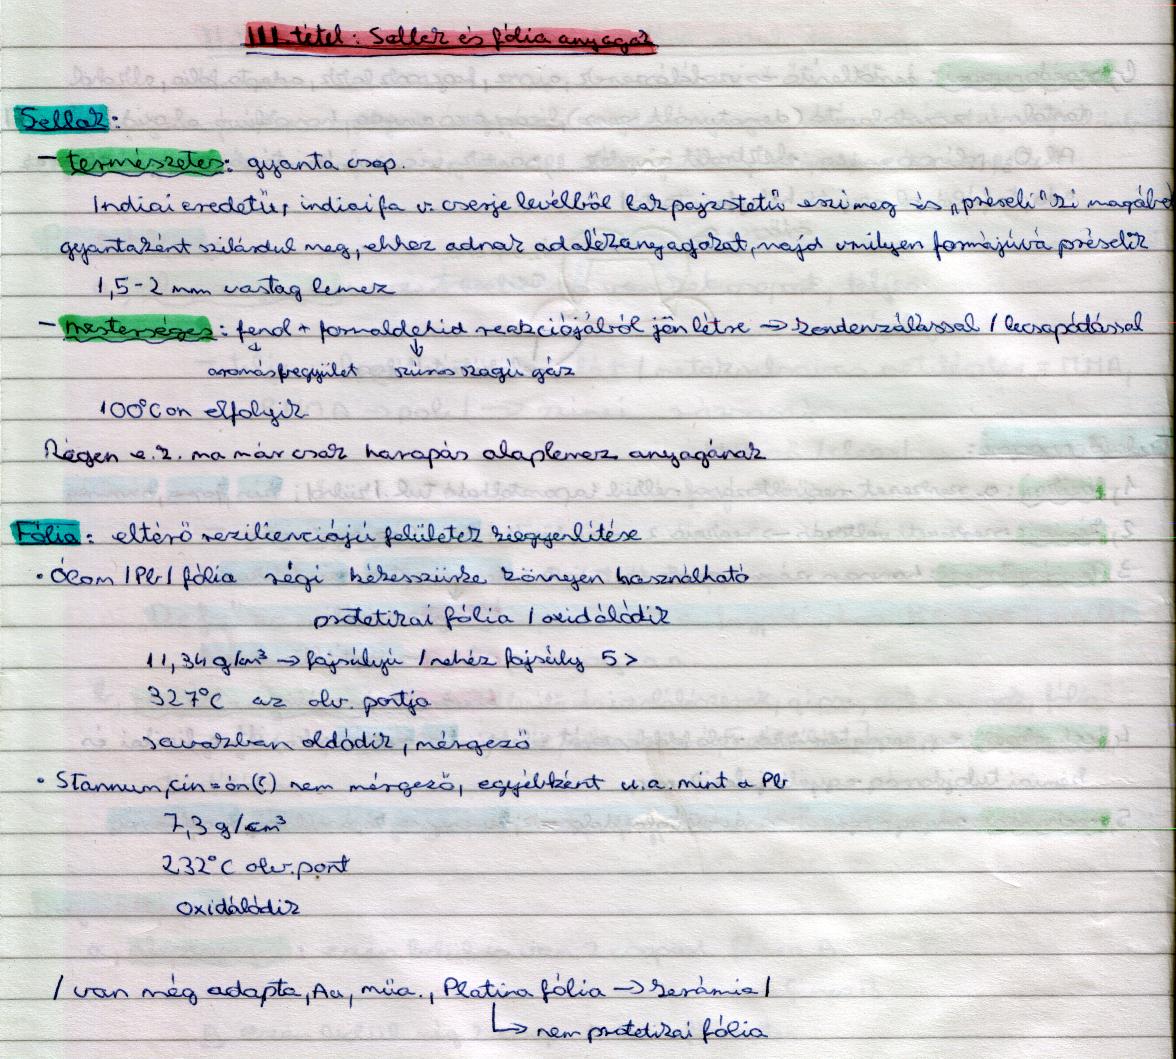 III. tétel: Sellak és fólia anyagok
Sellak:
- természetes: gyanta csop.
Indiai eredetű, indiai fa v. cserje levélből lakpajzstetű eszi meg és "préseli" ki magából
gyantaként szilárdul meg, ehhez adnak adalékanyagokat, majd vmilyen formájúvá préselik
1,5-2 mm vastag lemez
- mesterséges: fenol + formaldehid reakciójából jön létre → kondenzálással / lecsapódással
↓ ↓
aromás vegyület szúros szagú gáz
100°C on elfolyik
Régen e.k. ma már csak harapás alaplemez anyagának
Fólia: eltérő rezilienciájú felületek kiegyenlítése
• Ólom /Pb/ fólia régi kékesszürke könnyen használható
protetikai fólia / oxidálódik
11,34 g/cm³ → fajsúlyú / nehéz fajsúly 5>
327°C az olv. pontja
savakban oldódik, mérgező
• Stannum, cin = ón(!) nem mérgező, egyébként u.a. mint a Pb
7,3 g/cm³
232°C olv. pont
oxidálódik
/ van még adapta, Au, műa., Platina fólia → kerámia /
↳ nem protetikai fólia